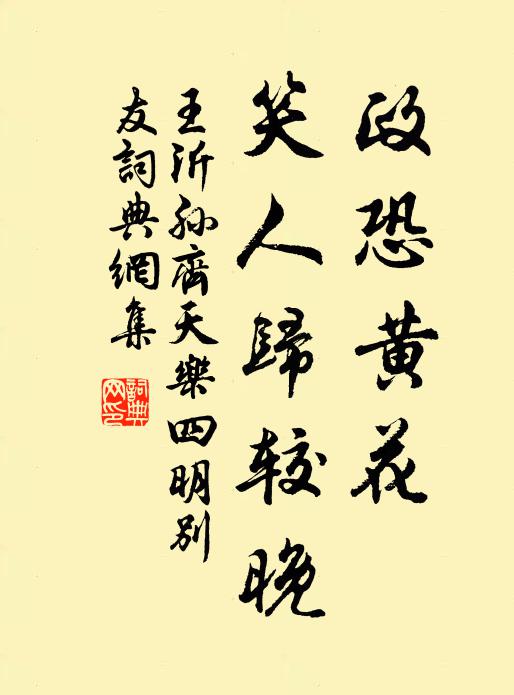 政恐黄花
笑人歸较晚
王沂孫齊天樂四明别
友詞典網集
詞典網印